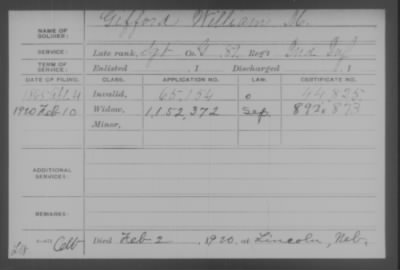 NAME OF SOLDIER: Gifford William M.
SERVICE: Late rank, Sgt Co. G 52 Reg't Ind Inf
TERM OF SERVICE: Enlisted , 1 Discharged , 1
DATE OF FILING. CLASS. APPLICATION NO. LAW. CERTIFICATE NO.
Invalid, 65,154 44,825
1920 Feb 10 Widow, 1,152,372 Sep. 892,873
Minor,
ADDITIONAL SERVICES:
REMARKS:
Died Feb 2 , 1920, at Lincoln, Neb.